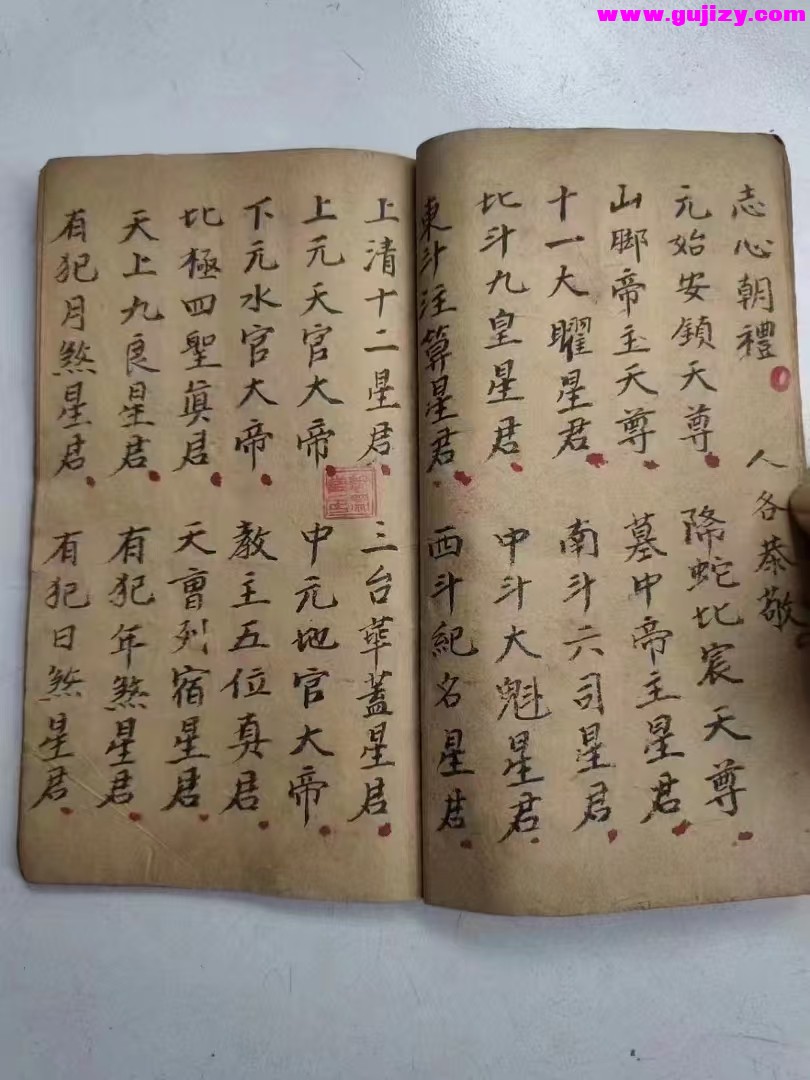 www.gujizy.com
志心朝禮 人各恭敬
元始安鎮天尊 降蛇比宸天尊
山脚帝主天尊 墓中帝主星君
十一大曜星君 南斗六司星君
比斗九皇星君 中斗大魁星君
東斗注算星君 西斗紀名星君
上清十二星君 三台華蓋星君
上元天官大帝 中元地官大帝
下元水官大帝 教主五位真君
比極四聖眞君 天曹列宿星君
天上九良星君 有犯年煞星君
有犯月煞星君 有犯日煞星君